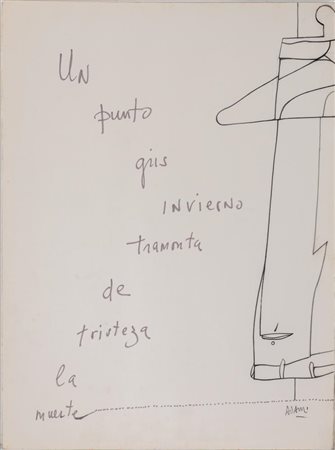 UN
punto
gris
INVIERNO
tramonta
de
tristeza
la
muerte
Adami